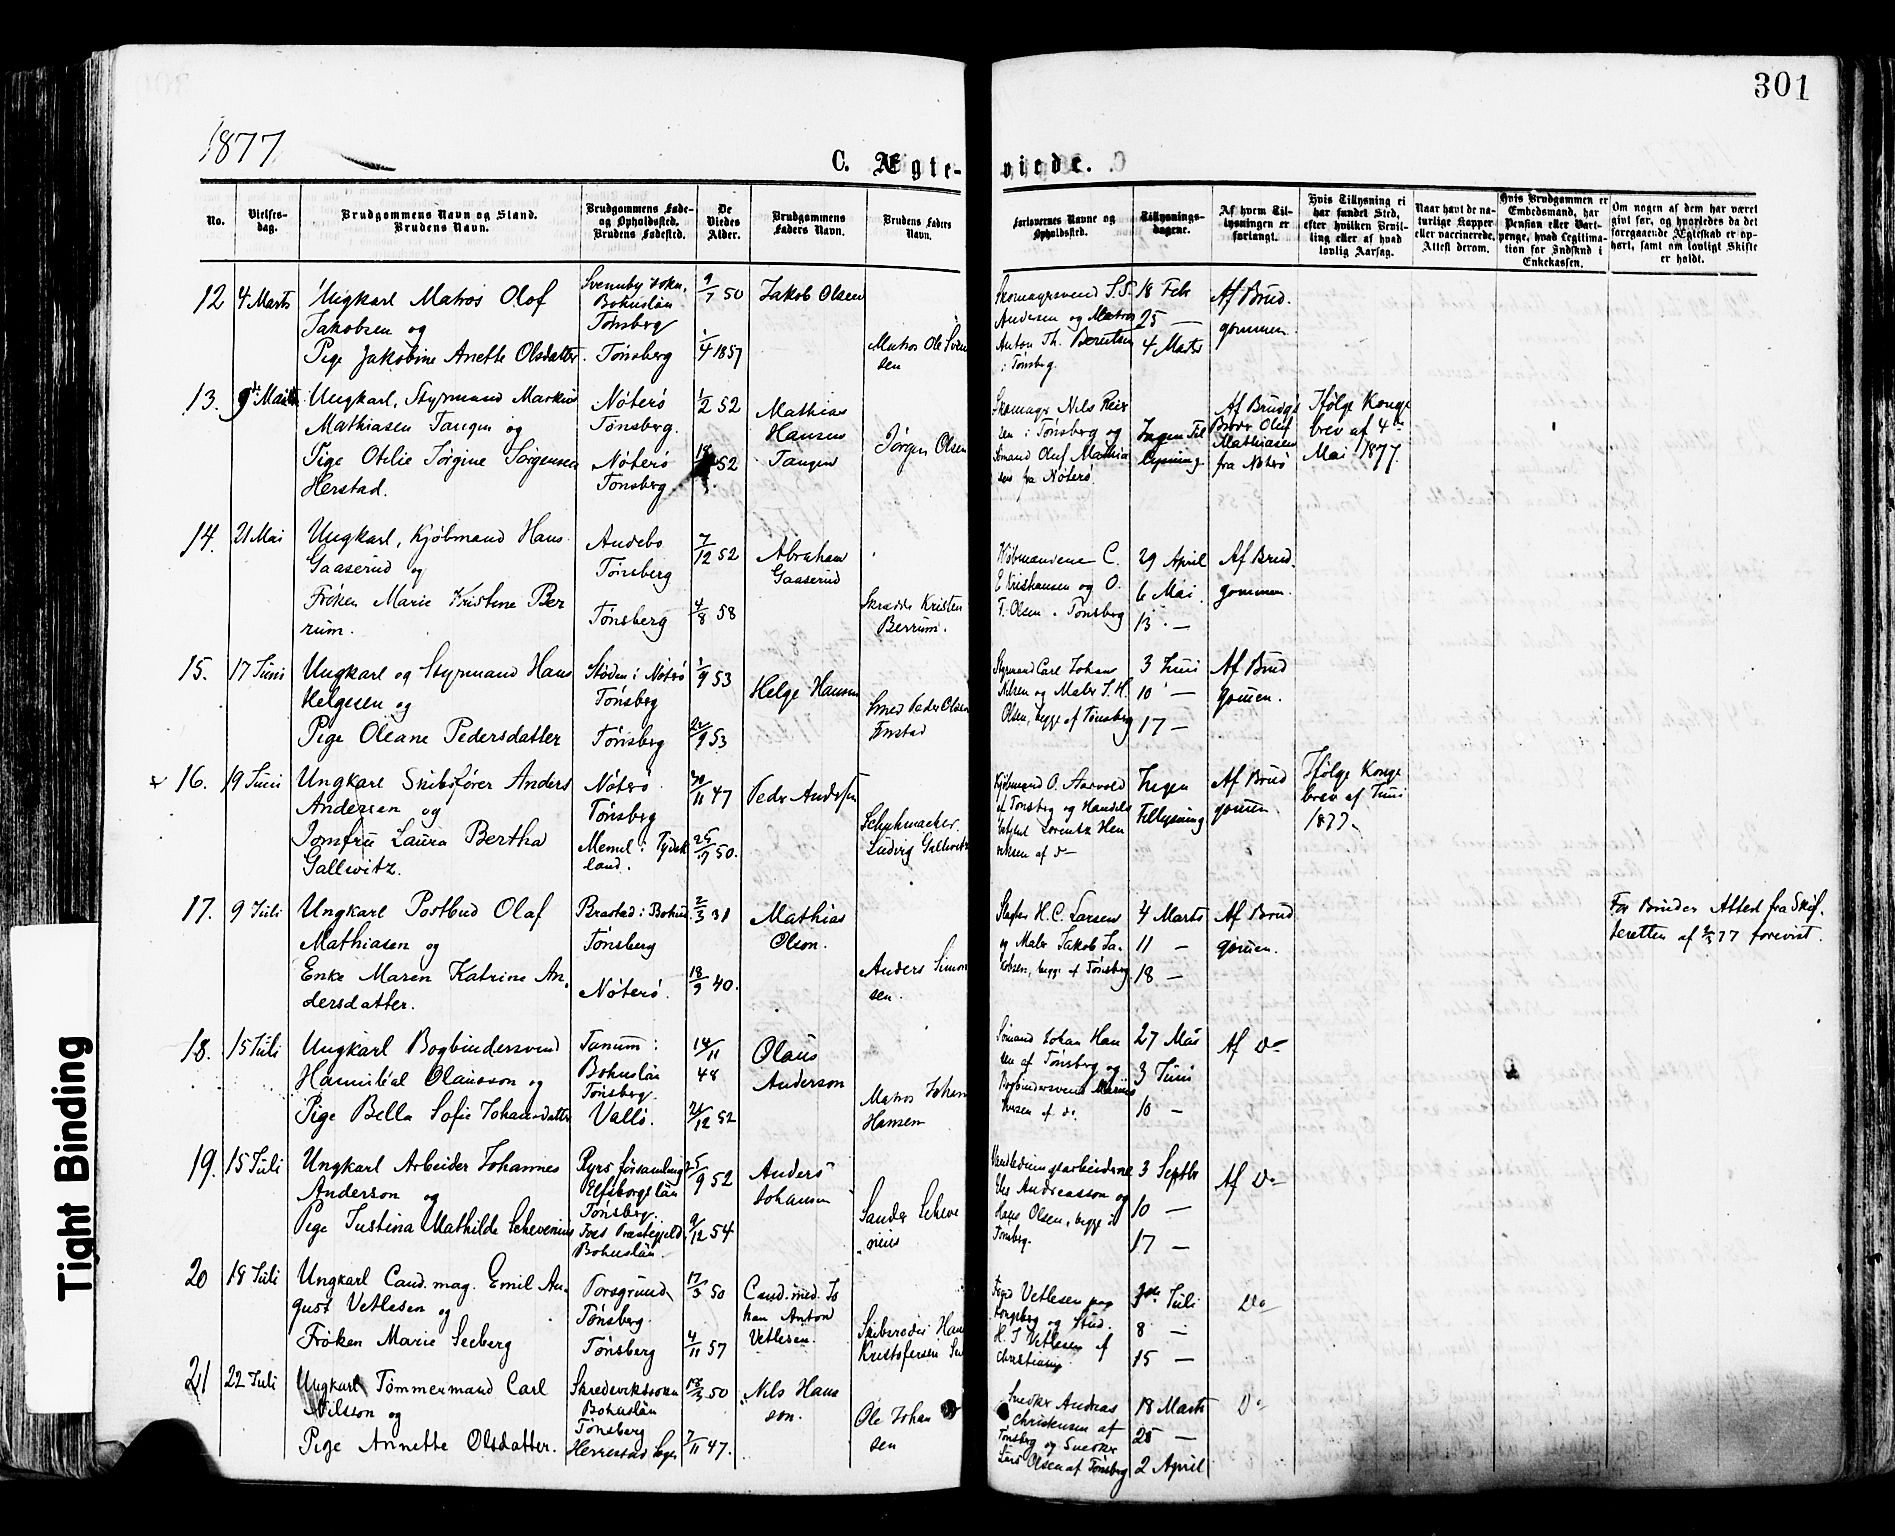 301
1877
C. Ægte-
viede.
No.
Vielses-
dag.
Brudgommens Navn og Stand.
Brudens Navn.
Brudgommens Føde-
og Opholdssted.
Brudens Fødested.
De
Viedes
Alder.
Brudgommens
Faders Navn.
Brudens Faders
Navn.
Forlovernes Navne og
Opholdssted.
Tillysnings-
dagene.
Af hvem Til-
lysningen er
forlangt.
Hvis Tillysning ei
har fundet Sted,
efter hvilken Bevil-
ling eller af hvad
lovlig Aarsag.
Naar havt de na-
turlige Kopper
eller vaccinerede.
Attest derom.
Hvis Brudgommen er
Embedsmand, har
Pension eller Vart-
penge, hvad Legitima-
tion for Indskud i
Enkekassen.
Om nogen af dem har været
gift før, og hvorledes da det
foregaaende Ægteskab er op-
hørt, samt om lovligt Skifte
er holdt.
12
4 Marts
Ungkarl Matros Olof
Jakobsen og
Pige Jakobine Anette Olsdatter.
Svenneby Sokn,
Bohuslän
Tønsberg
Tønsberg
9/7 50
1/4 1857
Jakob Olsen
Matros Ole Sven
sen
Skomagersvend S. T.
Andersen og Matros
Anton Th. Berntsen
i Tønsberg.
18 Feb
25 —
4 Marts
Af Brud.
gommen.
13.
9de Mai
Ungkarl, Styrmand Markus
Mathiasen Tangen og
Pige Otilie Jørgine Jørgensen
Herstad.
Nøterø
Tønsberg.
Nøterø
Tønsberg
1/2 52
52
Mathias
Hansen
Tangen
Jørgen Olsen
Skomager Nils Reier
sen i Tønsberg og
Sømand Oluf Mathia
sen fra Nøterø.
Ingen Til
lysning.
Af Brudgs
Broder Oluf
Mathiasen
fra Nøterø
Ifølge Konge
brev af 4de
Mai 1877.
14.
21 Mai
Ungkarl, Kjøbmand Hans
Gaaserud og
Frøken Marie Kristine Ber
rum.
Andebo
Tønsberg
Tønsberg
7/12 52
4/8 58
Abraham
Gaaserud
Skrædder Kristen
Berrum.
Kjøbmændene C.
E Kristiansen og O.
T. Olsen. Tønsberg
29 April
6 Mai.
13 —
Af Brud.
gommen.
15.
17 Juni
Ungkarl og Styrmand Hans
Helgesen og
Pige Oleane Pedersdatter
Støden i Nøterø
Tønsberg
Tønsberg
1/9 53
22/9 53
Helge Hansen
Smed Peder Olsen
Styrmand Carl Johan
Nilsen og Maler J. H.
Olsen, begge af Tønsberg
3 Juni
10 —
17 —
Af Brud
gomen.
16.
19 Juni
Ungkarl Skibsfører Anders
Andersen og
Jomfru Laura Bertha
Gallwitz.
Nøterø
Tønsberg
Memel i Tydsk
land.
30/11 47
50.
Peder Andersen
Schuhmacher
Ludvig Gallwitz
Kjøbmand O. Aarvold
af Tønsberg og Handels
Lorentz Hen
riksen af do
Ingen
Tillysning
Af Brud
gomen.
Ifølge Konge
brev af Juni
1877.
17.
9 Juli
Ungkarl Postbud Olaf
Mathiasen og
Enke Maren Katrine An,
dersdatter.
Brastad i Bohus.
Tønsberg
Nøterø.
2/3 31
18/9 40.
Mathias
Olson.
Anders Simon
sen.
Slagter H. C. Larsen
og Maler Jakob Ja-
kobsen, begge af Tønsberg
4 Marts
11 —
18 —
Af Brud
gomen.
For Bruden Attest fra Skif-
teretten af 77 forevist.
18.
15 Juli
Ungkarl Bogbindersvend
Hannibal Olausson og
Pige Bella Sofie Johansdatter
Tanum i
Bohuslän
Tønsberg.
Vallø.
14/11
48
21/12 52
Olaus
Anderson
Matros Johan
Hansen
Sømand Johan Han
sen af Tønsberg og
Bogbindersvend Marius
Iversen af do.
27 Mai
3 Juni
10 —
Af Do
19.
15 Juli
Ungkarl Arbeider Johannes
Anderson og
Pige Justina Mathilde Schevenius
Ryrs församling
Elfsborgslän
Tønsberg.
Foss Præstegjeld
Bohuslän.
25/9 52
9/12 54
Anders
Johansen
Sander Scheve
nius
Vandledningsarbeiderne
Andreasson og
Hans Olsen, begge i
Tønsberg.
3 Septbr
10 —
17 —
Af Do
20
18 Juli
Ungkarl Cand. mag. Emil Au-
gust Vetlesen og
Frøken Marie Seeberg
Porsgrund
Tønsberg.
Tønsberg
17/3 50
4/11 57
Cand. med. Jo
han Anton
Vetlesen.
Skibsreder Hans
Kristofersen See
Foged Vetlesen paa
Kongsberg og Stud.
H. J. Vetlesen af
Christiania.
Juli
8 —
15 —
Do
21
22 Juli
Ungkarl Tømmermand Carl
Nilsson og
Pige Annette Olsdatter.
Skredsvikssokn
Bohuslän
Tønsberg
Herrestad Sogn
13/3 50
7/11 47.
Nils Hans
son.
Ole Johan
sen
Snedker Andreas
Christensen af
Tønsberg og Snedker
Lars Olsen af Tønsberg
18 Marts
25 —
2 April
Do
Tight Binding